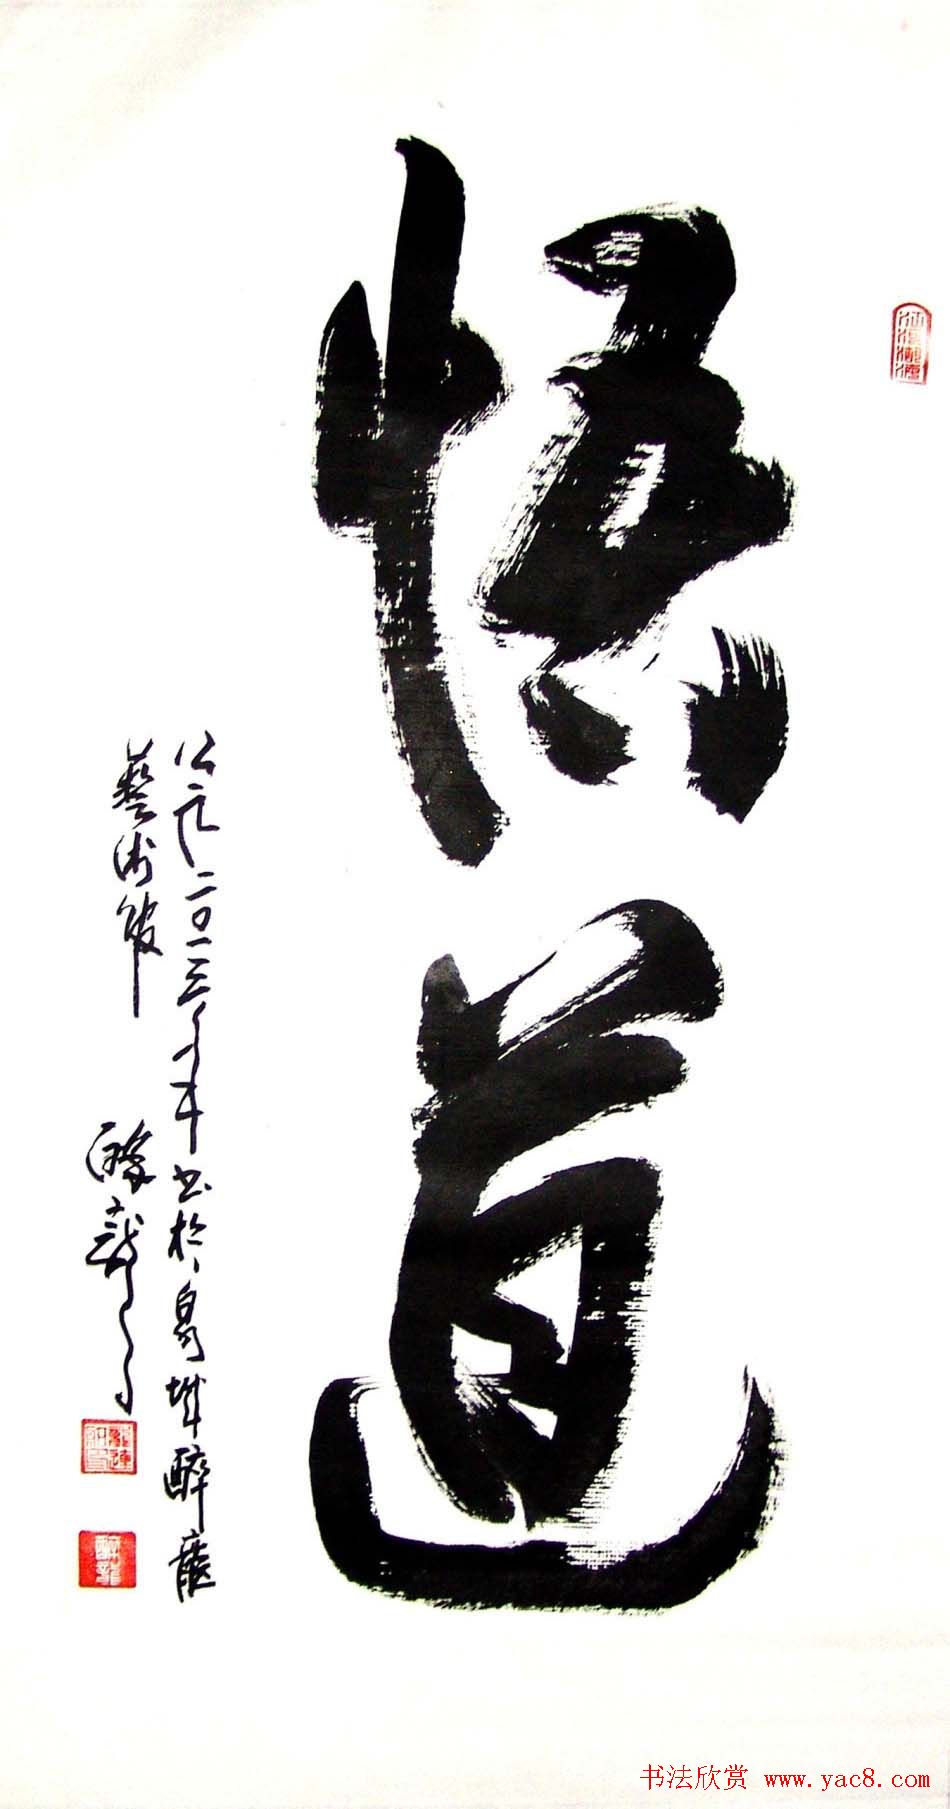 悟道
公元二〇一三年书於泉城醉龙
艺术馆
醉龙
书法欣赏 www.yac8.com